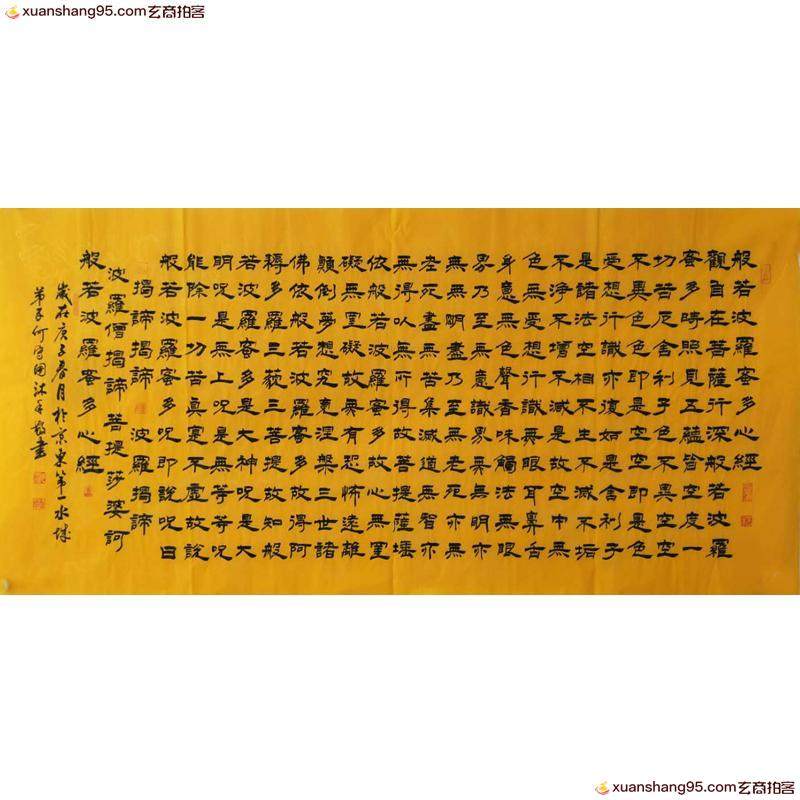 xuanshang95.com玄商拍客
xuanshang95.com玄商拍客
般若波羅蜜多心經
觀自在菩薩行深般若波羅
蜜多時照見五蘊皆空度一
切苦厄舍利子色不異空空
不異色色即是空空即是色
受想行識亦復如是舍利子
是諸法空相不生不滅不垢
不淨不增不減是故空中無
色無受想行識無眼耳鼻舌
身意無色聲香味觸法無眼
界乃至無意識界無無明亦
無無明盡乃至無老死亦無
老死盡無苦集滅道無智亦
無得以無所得故菩提薩埵
依般若波羅蜜多故心無罣
礙無罣礙故無有恐怖遠離
顛倒夢想究竟涅槃三世諸
佛依般若波羅蜜多故得阿
耨多羅三藐三菩提故知般
若波羅蜜多是大神呪是大
明呪是無上呪是無等等呪
能除一切苦真實不虛故說
般若波羅蜜多呪即說呪曰
揭諦揭諦 波羅揭諦
波羅僧揭諦 菩提莎婆訶
般若波羅蜜多心經
歲在庚子春月於京東第一水城
弟子何國沐手敬書
xuanshang95.com玄商拍客